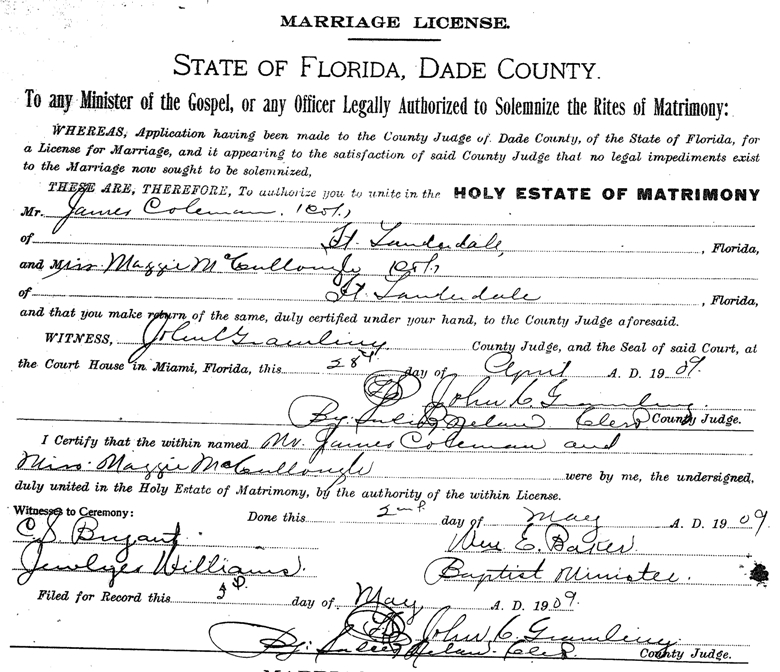 MARRIAGE LICENSE.
STATE OF FLORIDA, DADE COUNTY.
To any Minister of the Gospel, or any Officer Legally Authorized to Solemnize the Rites of Matrimony:
WHEREAS, Application having been made to the County Judge of Dade County, of the State of Florida, for
a License for Marriage, and it appearing to the satisfaction of said County Judge that no legal impediments exist
to the Marriage now sought to be solemnized,
THESE ARE, THEREFORE, To authorize you to unite in the HOLY ESTATE OF MATRIMONY
Mr. James Coleman, col,
of Ft. Lauderdale, , Florida,
and Miss Maggie McCullough col,
of Ft. Lauderdale , Florida,
and that you make return of the same, duly certified under your hand, to the County Judge aforesaid.
WITNESS, John C Gramling County Judge, and the Seal of said Court, at
the Court House in Miami, Florida, this 28 day of April A. D. 19 09.
John C. Gramling
By: Clerk County Judge.
I Certify that the within named Mr. James Coleman and
Miss. Maggie McCullough were by me, the undersigned,
duly united in the Holy Estate of Matrimony, by the authority of the within License.
Witnesses to Ceremony: Done this 2nd day of May A. D. 19 09.
C. S. Bryant Wm E. Baker
Williams. Baptist Minister.
Filed for Record this 3d day of May A. D. 19 09.
John C. Gramling
By: Clerk County Judge.